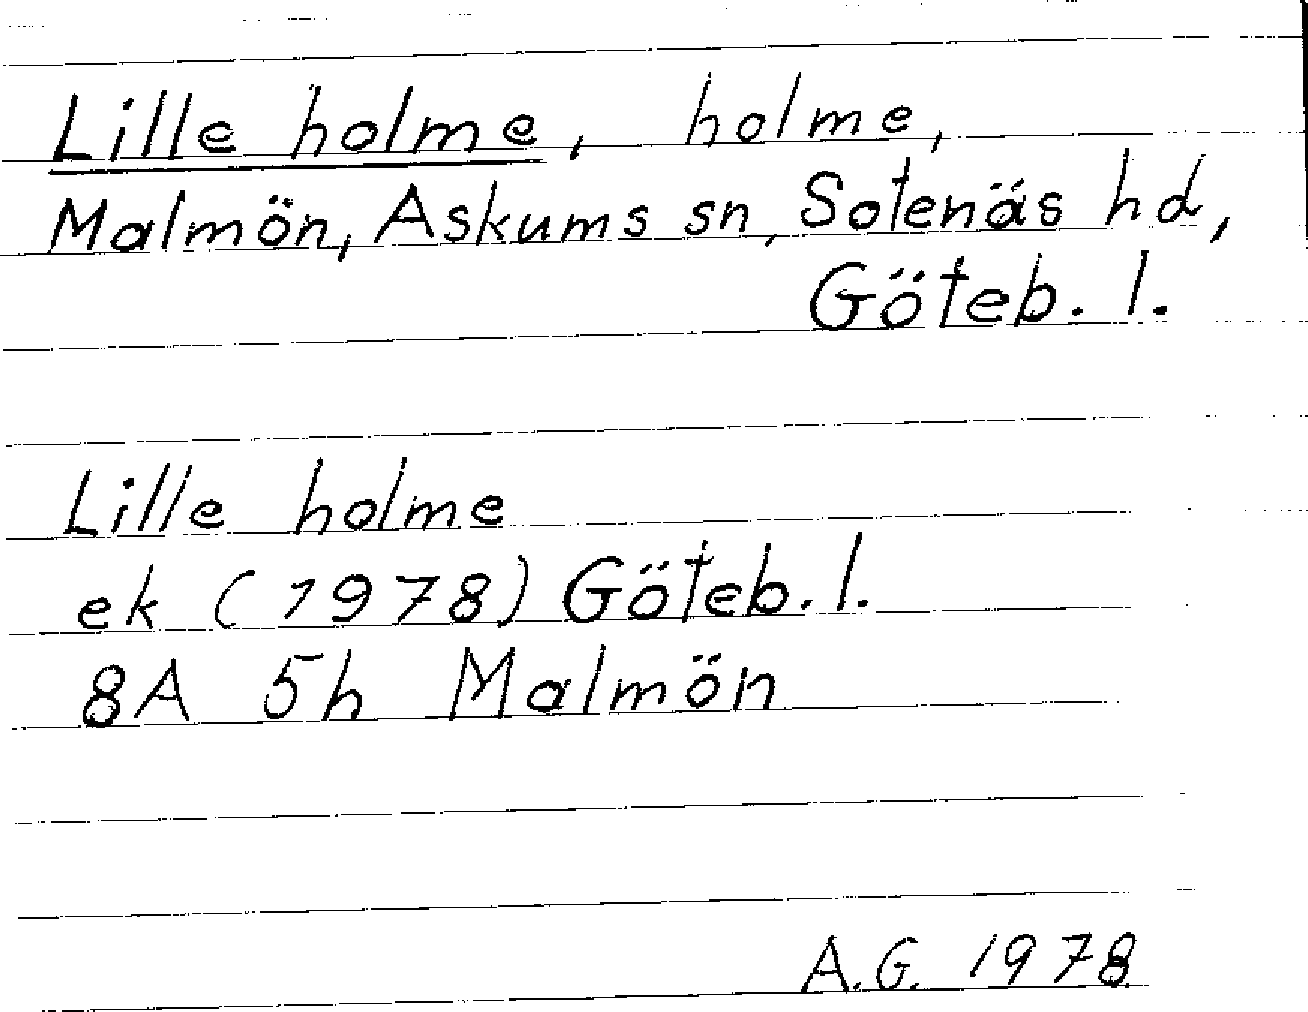 Lille holme, holme,
Malmön, Askums sn, Sotenäs hd,
Göteb. l.
Lille holme
ek (1978) Göteb. l.
8A 5h Malmön
A.G. 1978